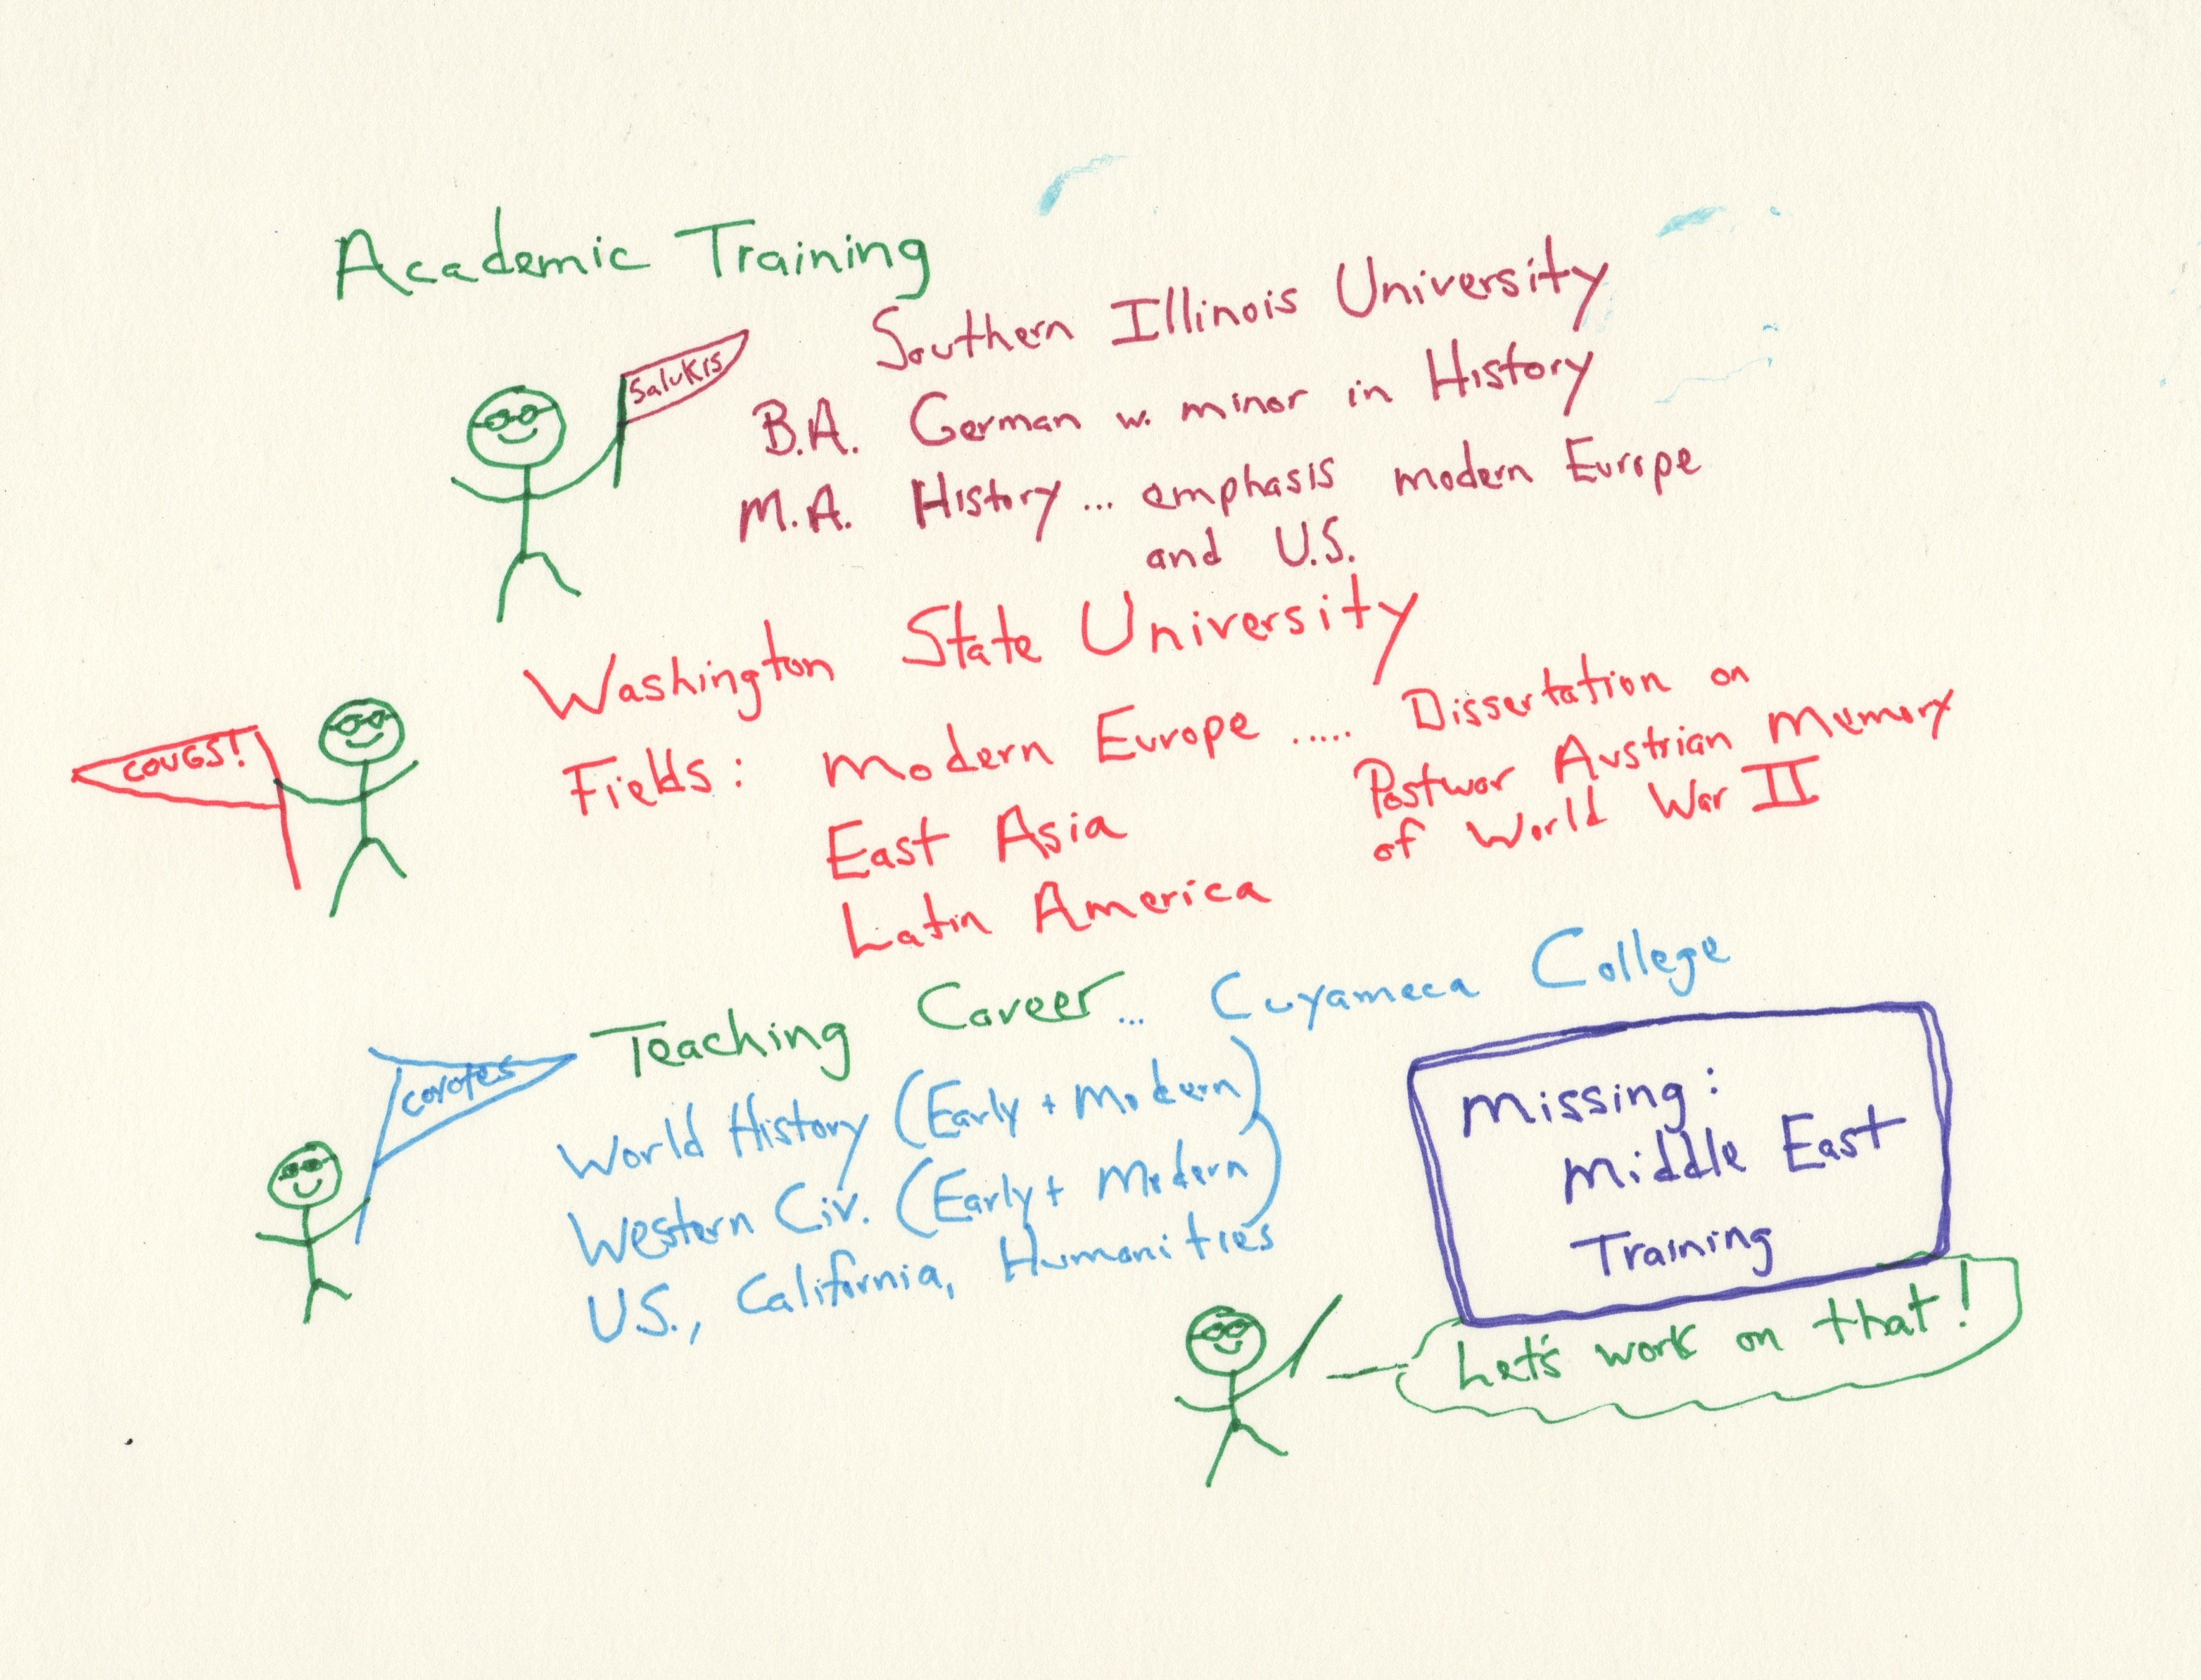 Academic Training
Southern Illinois University
Salukis
B.A. German w. minor in History
M.A. History... emphasis modern Europe
and U.S.
Washington State University
COUGS!
Fields: Modern Europe ..... Dissertation on
Postwar Austrian Memory
of World War II
East Asia
Latin America
Teaching Career... Cuyameca College
Coyotes
World History (Early + Modern)
Western Civ. (Early + Modern)
U.S., California, Humanities
Missing:
Middle East
Training
Let's work on that!